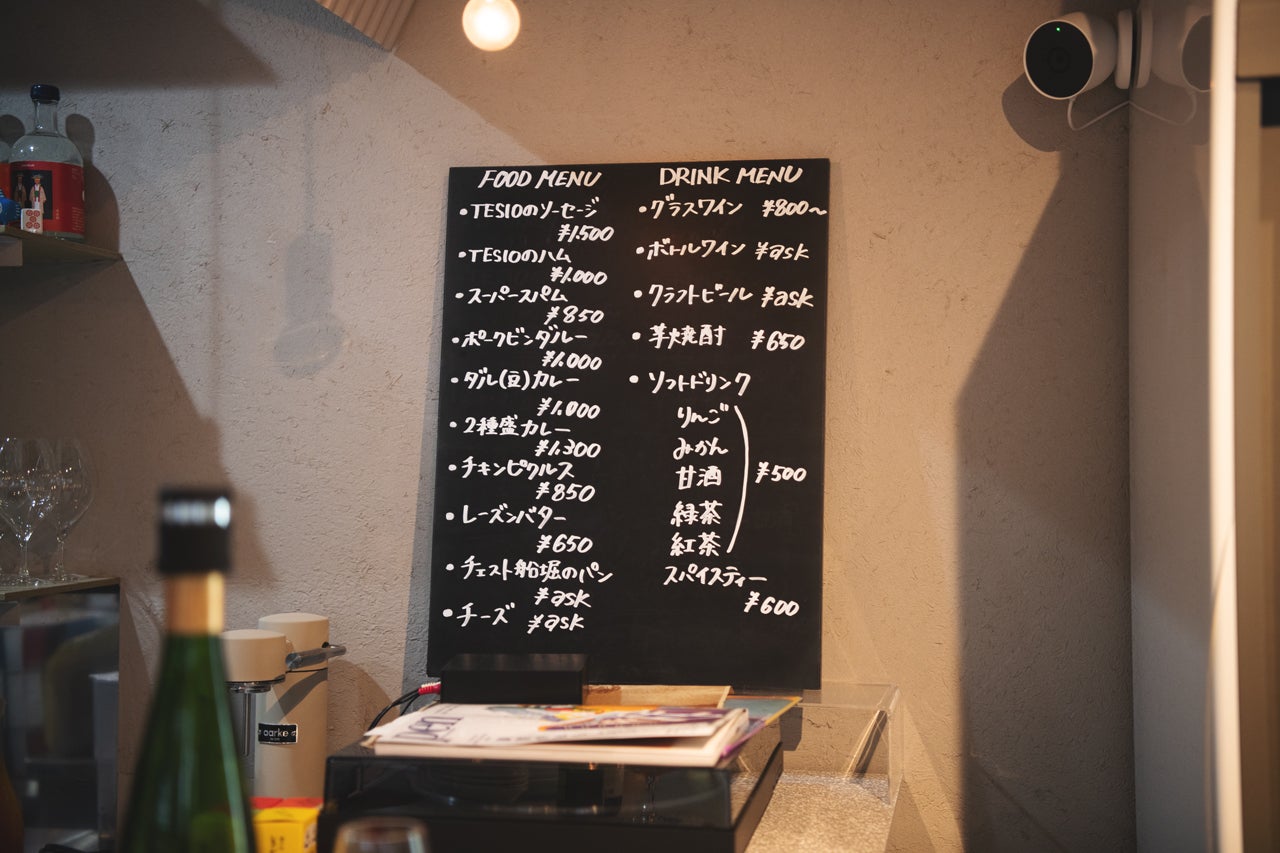 FOOD MENU
・TESIOのソーセージ
¥1.500
・TESIOのハム
¥1.000
・スーパースパム
¥850
・ポークビンダルー
¥1.000
・ダル(豆)カレー
¥1.000
・2種盛カレー
¥1.300
・チキンピクルス
¥850
・レーズンバター
¥650
・チェスト船堀のパン
¥ask
・チーズ ¥ask
DRINK MENU
・グラスワイン ¥800~
・ボトルワイン ¥ask
・クラフトビール ¥ask
・芋焼酎 ¥650
・ソフトドリンク
りんご
みかん
甘酒
緑茶
紅茶
¥500
スパイスティー
¥600
aarke